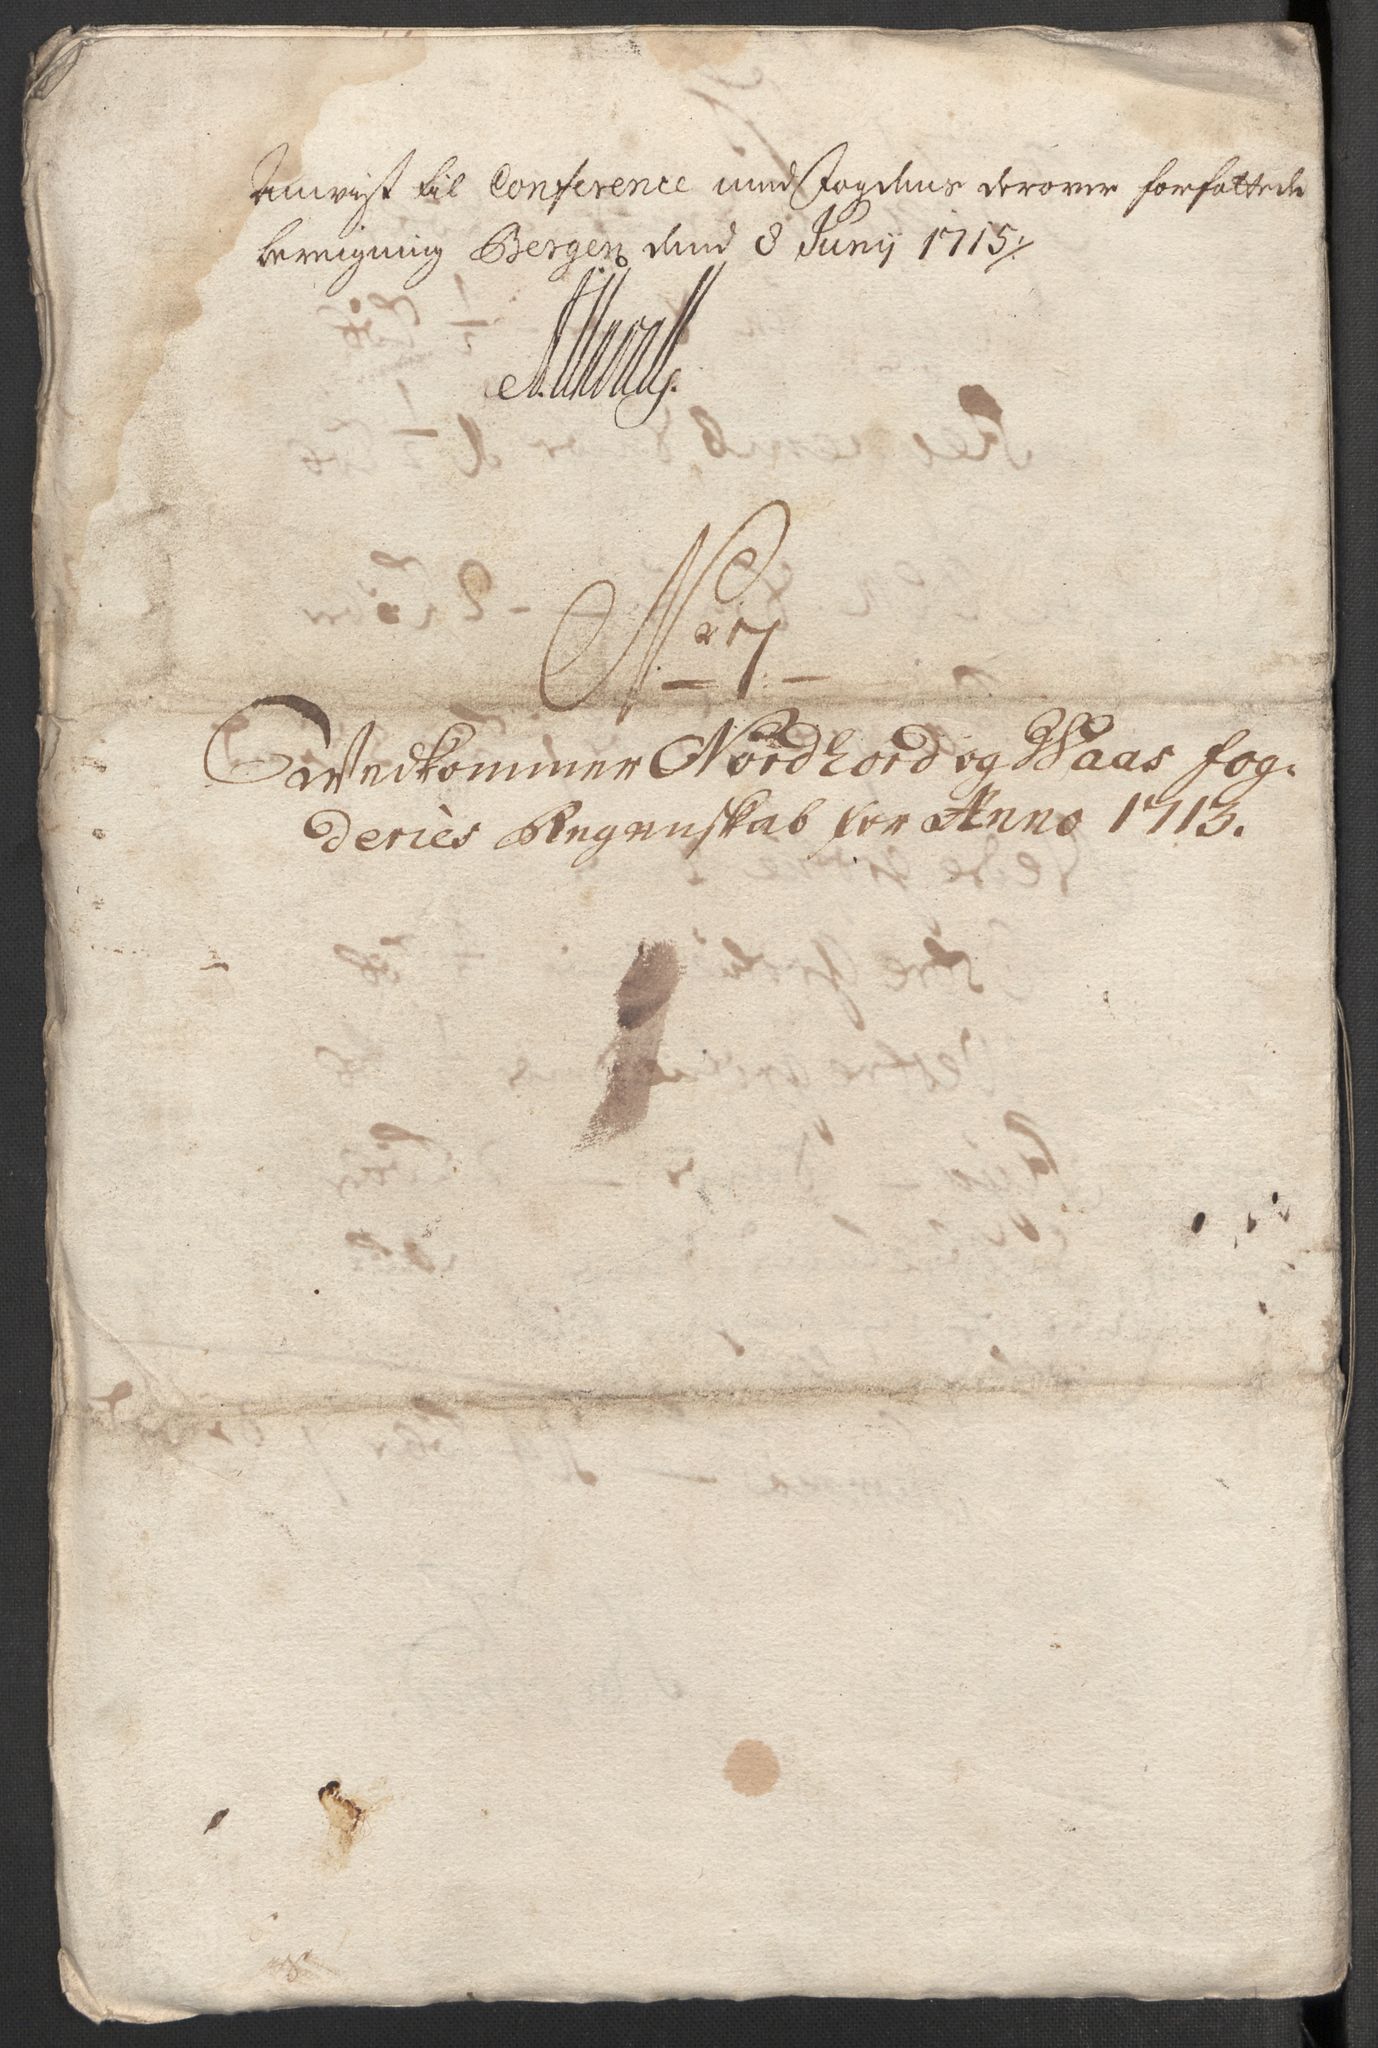 Anvist til Conference med fogdens derover forfattede
bereigning Bergen dend 8 Junij 1715
No 7
Vedkommer Nordhord og Waas fog-
deries Regenskab for Anno 1713.